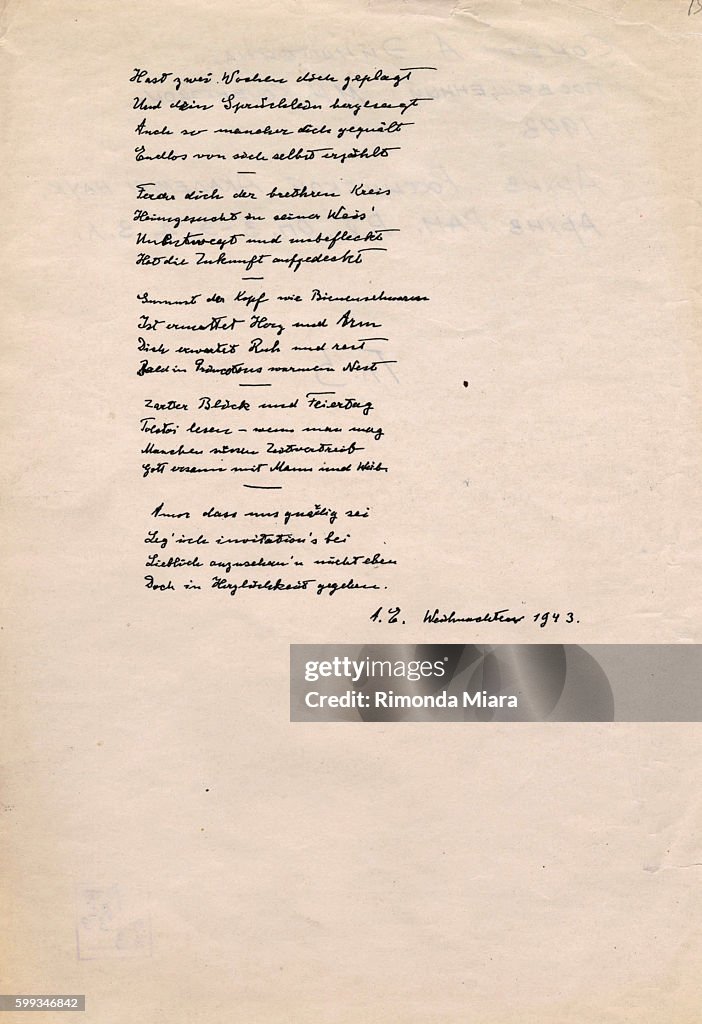 Hast zwei Wochen dich geplagt
Und dein Sprüchlein hergesagt
Auch so mancher dich gequält
Endlos von sich selbst erzählt
Ferne dich der brethren Kreis
Heimgesucht in seiner Weis'
Unentwegt und unbefleckt
Hat die Zukunft aufgedeckt
Summst der Kopf wie Bienenschwarm
Ist ermattet Herz und Arm
Dich erwartet Ruh und rest
Bald in Princetons warmem Nest
Zarter Blick und Feiertag
Tolstoi lesen – wenn man mag
Manchen süssen Zeitvertreib
Gott ersann mit Mann und Weib.
Amor dass uns gnädig sei
Leg' ich invitation's bei
Lieblich anzusehen'n nicht eben
Doch in Herzlichkeit gegeben.
A. E. Weihnachten 1943.
gettyimages®
Rimonda Miara
599346842